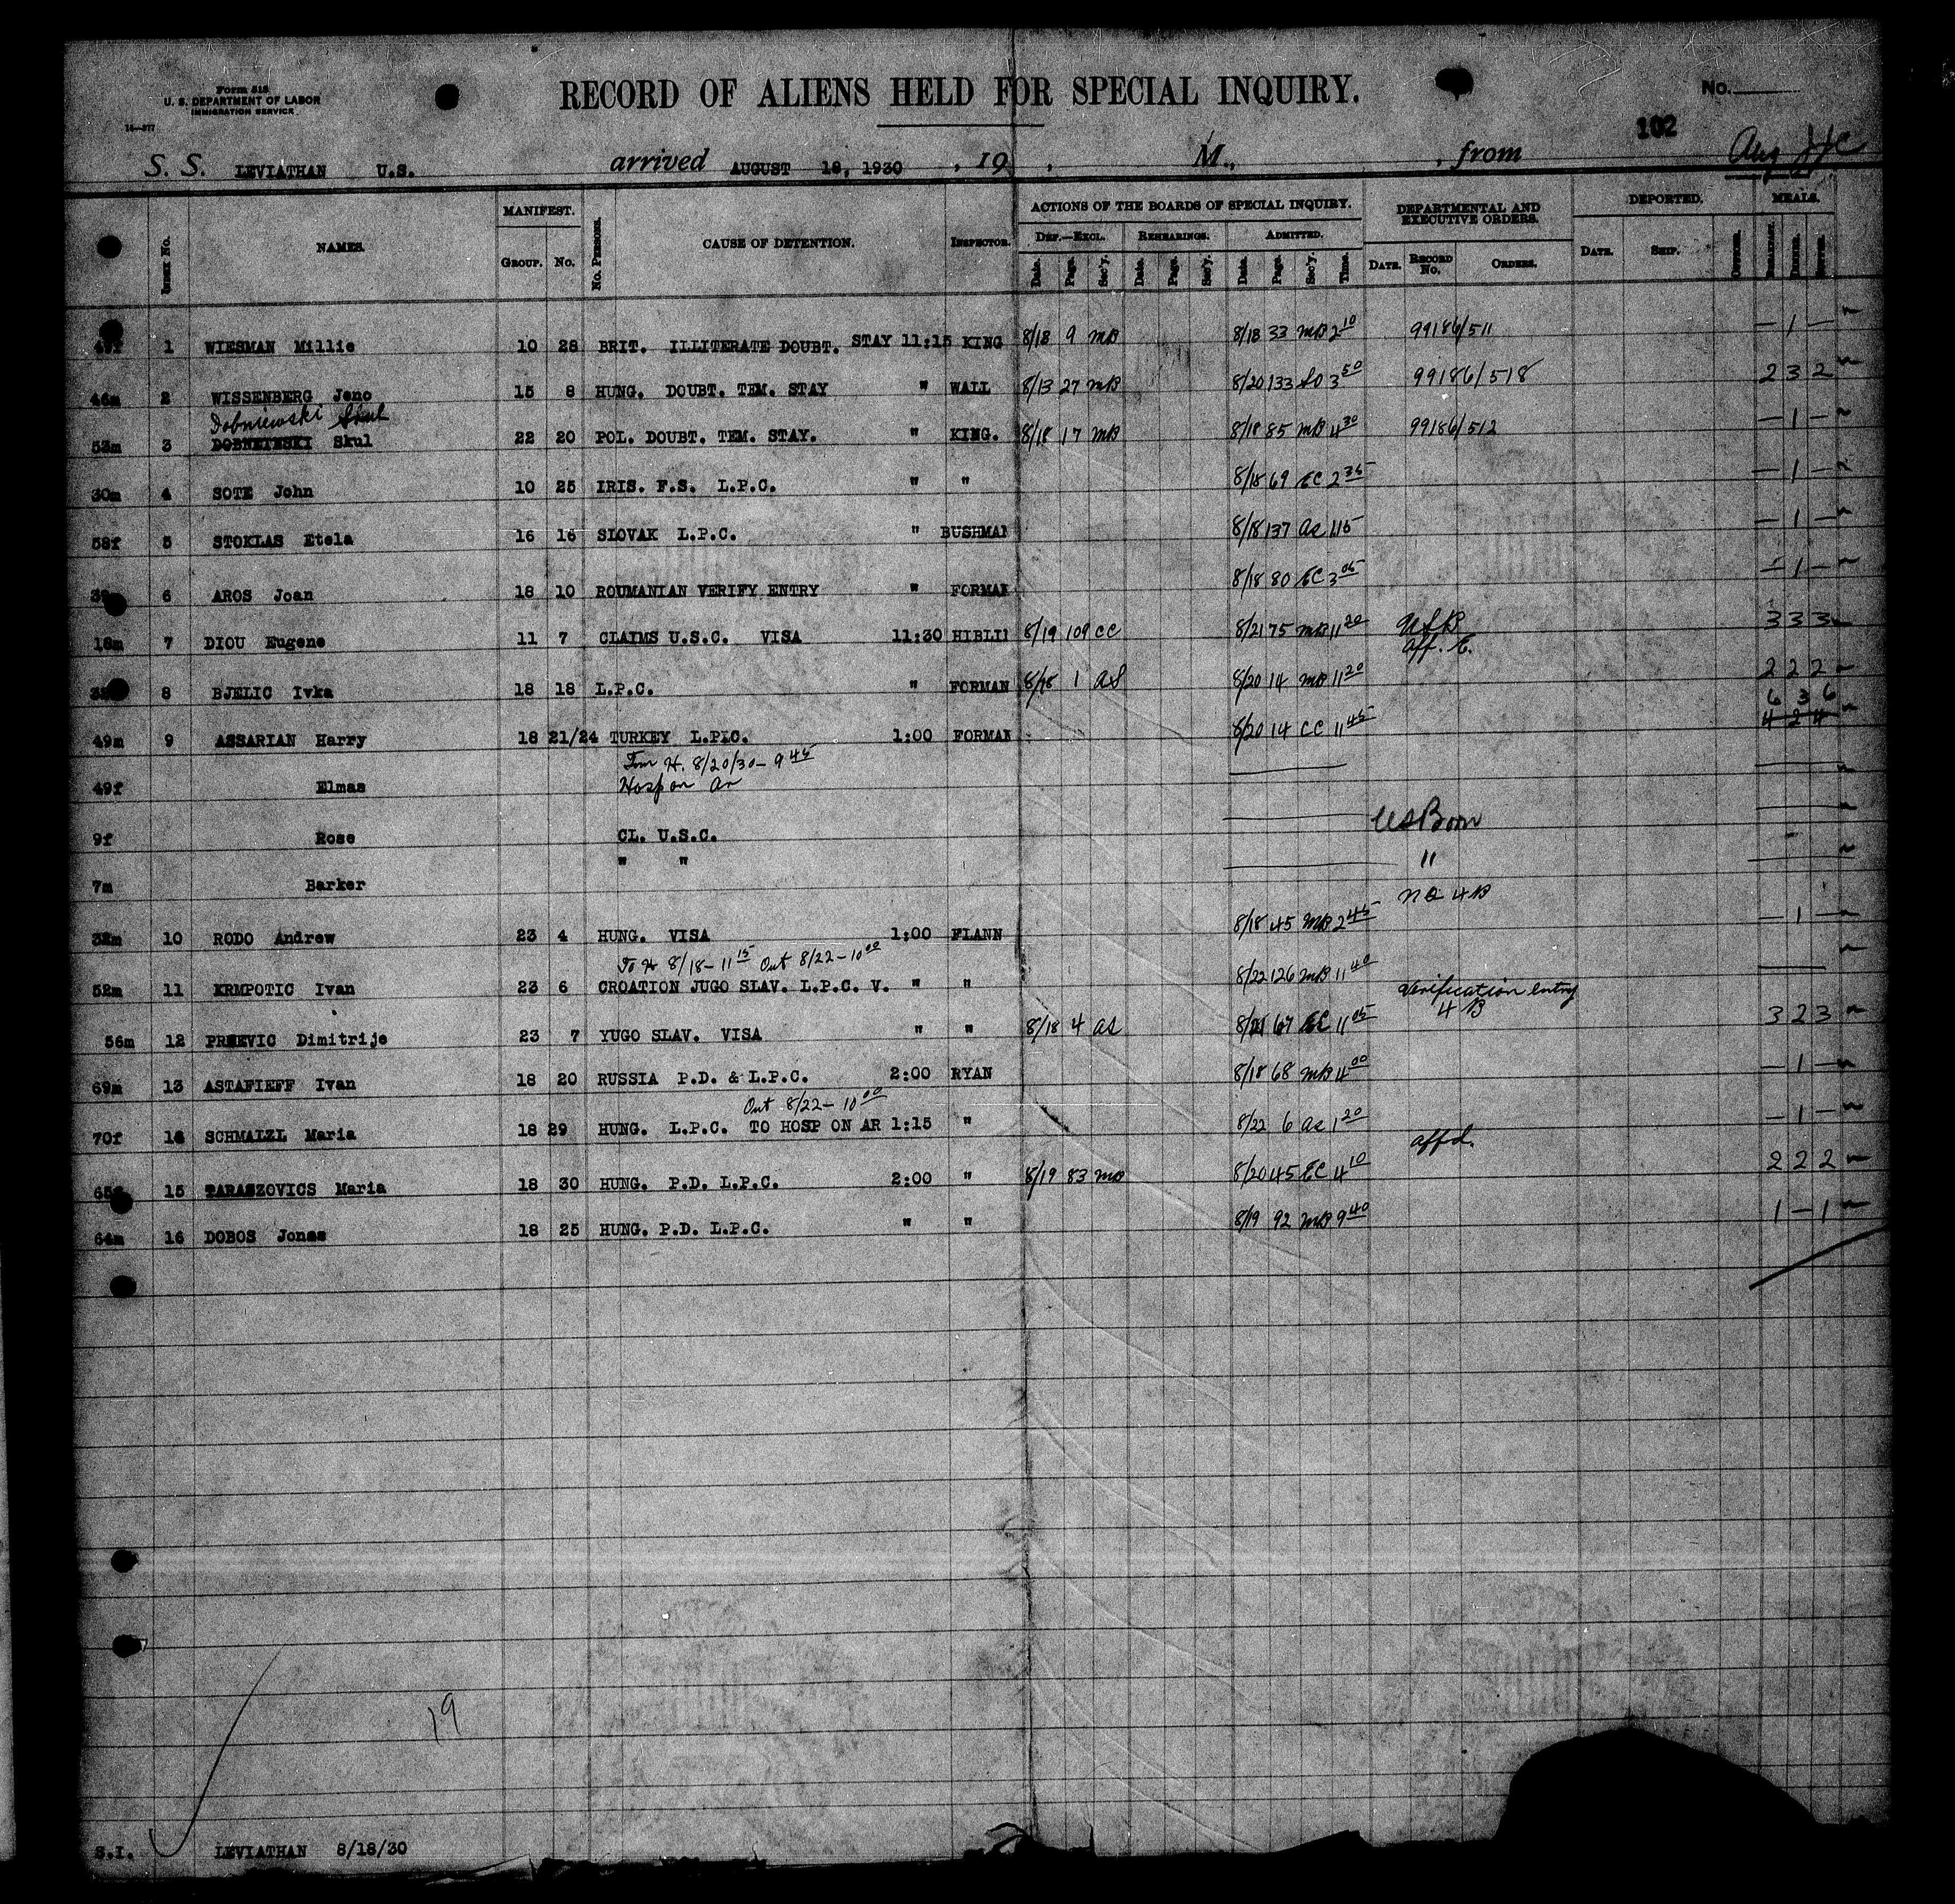 Form 518
U. S. DEPARTMENT OF LABOR
IMMIGRATION SERVICE
RECORD OF ALIENS HELD FOR SPECIAL INQUIRY.
No.
102
S. S. LEVIATHAN U.S. arrived AUGUST 18, 1930 , 19 , M., , from Aug
INDEX No. NAMES. MANIFEST. GROUP. No. No. PERSONS. CAUSE OF DETENTION. INSPECTOR. ACTIONS OF THE BOARDS OF SPECIAL INQUIRY. DEF.—EXCL. Date. Page. Sec'y. REHEARINGS. Date. Page. Sec'y. ADMITTED. Date. Page. Sec'y. Time. DEPARTMENTAL AND EXECUTIVE ORDERS. DATE. RECORD No. ORDERS. DEPORTED. DATE. SHIP. MEALS. BREAKFAST. DINNER. SUPPER.
1 WIESMAN Millie 10 28 BRIT. ILLITERATE DOUBT. STAY 11:15 KING 8/18 9 MB 8/18 33 MB 2 10 99186/511 — 1 —
46m 2 WISSENBERG Jeno 15 8 HUNG. DOUBT. TEM. STAY " WALL 8/13 27 MB 8/20 133 3 50 99186/518 2 3 2
Dobniewski Skul
53m 3 DOBNEINSKI Skul 22 20 POL. DOUBT. TEM. STAY. " KING. 8/18 17 MB 8/18 85 MB 4 30 99186/512 — 1 —
30m 4 SOTE John 10 25 IRIS. F.S. L.P.C. " " 8/18 69 EC 2 35 — 1 —
58f 5 STOKLAS Etela 16 16 SLOVAK L.P.C. " BUSHMAN 8/18 137 as 1 15 — 1 —
6 AROS Joan 18 10 ROUMANIAN VERIFY ENTRY " FORMAN 8/18 80 EC 3 05 — 1 —
18m 7 DIOU Eugene 11 7 CLAIMS U.S.C. VISA 11:30 HIBLI 8/19 109 CC 8/21 75 MB 11 20 USB 3 3 3
aff. E.
8 BJELIC Ivka 18 18 L.P.C. " FORMAN 8/18 1 as 8/20 14 MB 11 20 2 2 2
6 3 6
49m 9 ASSARIAN Harry 18 21/24 TURKEY L.PIC. 1:00 FORMAN 8/20 14 CC 11 45 4 2 4
Fom H. 8/20/30 - 9 45
49f Elmas Hosp on ar
9f Rose CL. U.S.C. US Born
7m Barker " " "
NQ 4B
32m 10 RODO Andrew 23 4 HUNG. VISA 1:00 FLANN 8/18 45 MB 2 45 — 1 —
To H 8/18 - 11 15 Out 8/22 - 10 00
52m 11 KRMPOTIC Ivan 23 6 CROATION JUGO SLAV. L.P.C. V. " " 8/22 126 MB 11 40 Verification entry
4 B
56m 12 PRNEVIC Dimitrije 23 7 YUGO SLAV. VISA " " 8/18 4 as 8/21 67 EC 11 05 3 2 3
69m 13 ASTAFIEFF Ivan 18 20 RUSSIA P.D. & L.P.C. 2:00 RYAN 8/18 68 MB 4 00 — 1 —
Out 8/22 - 10 00
70f 14 SCHMALZL Maria 18 29 HUNG. L.P.C. TO HOSP ON AR 1:15 " 8/22 6 as 1 20 affd. — 1 —
15 TARASZOVICS Maria 18 30 HUNG. P.D. L.P.C. 2:00 " 8/19 83 MB 8/20 45 EC 4 10 2 2 2
64m 16 DOBOS Jonas 18 25 HUNG. P.D. L.P.C. " " 8/19 92 MB 9 40 1 — 1
19
S.I. LEVIATHAN 8/18/30